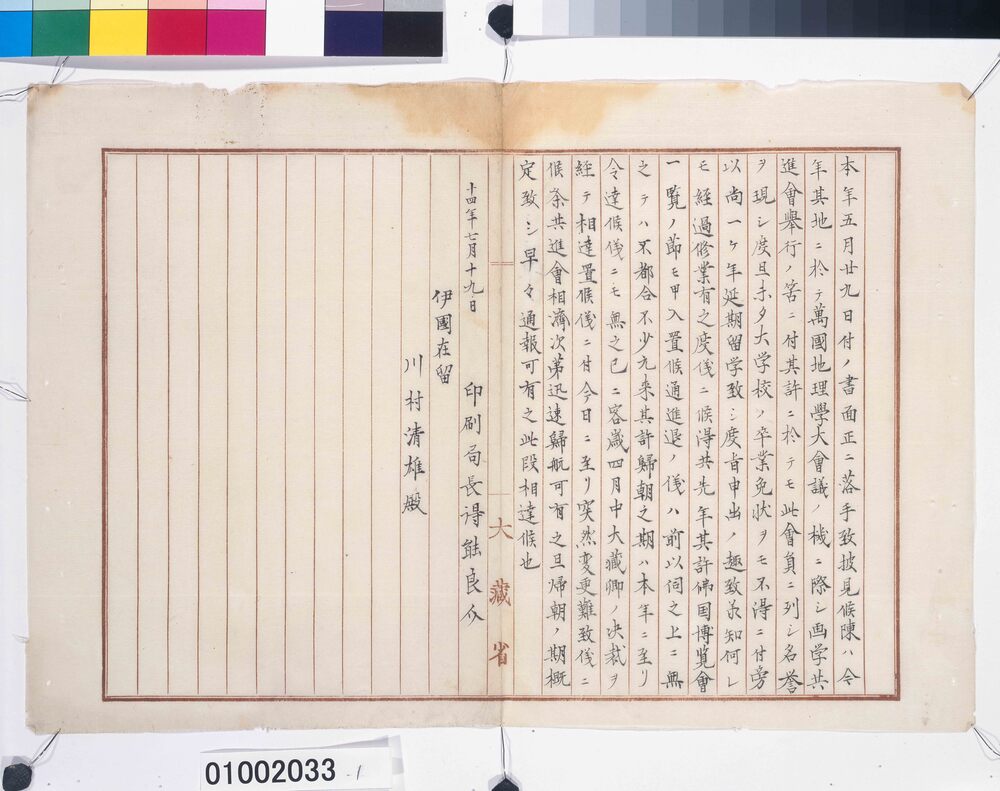 本年五月廿九日付ノ書面正ニ落手致披見候陳ハ今
年其地ニ於テ萬國地理學大會議ノ機ニ際シ画学共
進會擧行ノ筈ニ付其許ニ於テモ此會員ニ列シ名誉
ヲ現シ度且未タ大学校ノ卒業免状ヲモ不得ニ付旁
以尚一ケ年延期留学致シ度旨申出ノ趣致承知何レ
モ経過修業有之度儀ニ候得共先年其許佛国博覧會
一覧ノ節モ甲入置候通進退ノ儀ハ前以伺之上ニ無
之テハ不都合不少尤来其許歸朝之期ハ本年ニ至リ
令達候儀ニモ無之已ニ客歳四月中大藏卿ノ决裁ヲ
経テ相達置候儀ニ付今日ニ至リ突然変更難致儀ニ
候条共進會相濟次第迅速歸航可有之且帰朝ノ期概
定致シ早々通報可有之此段相達候也
十四年七月十九日
印刷局長得能良介
伊國在留
川村清雄殿
大藏省
01002033-1